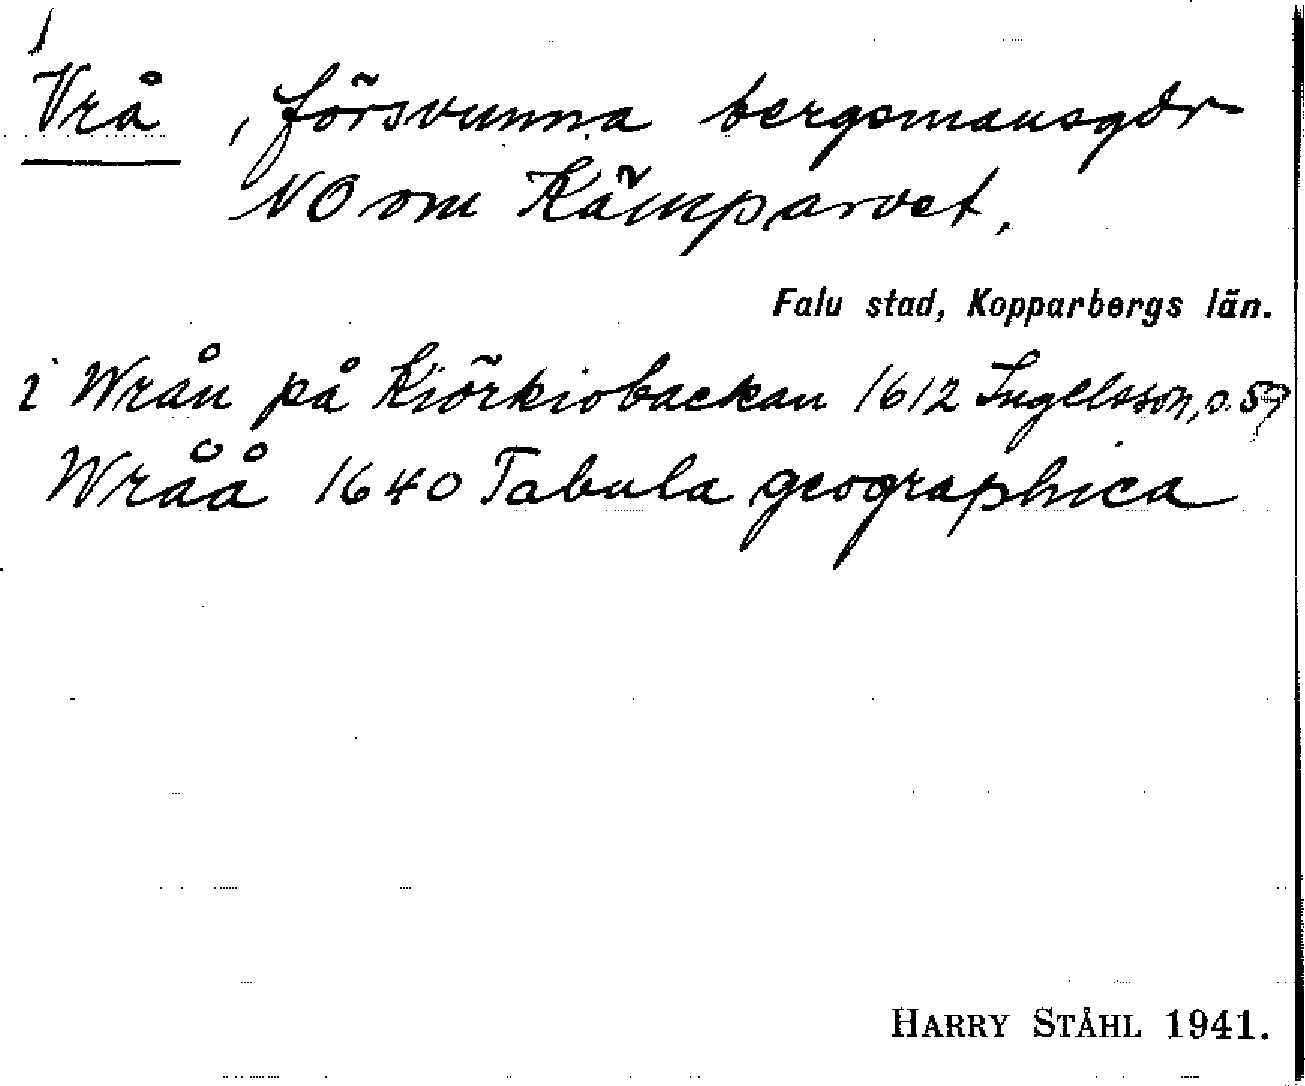 Vrå, försvunna bergsmansgår
NO om Kämparvet.
Falu stad, Kopparbergs län.
i Wrån på Kiörkiobackan 1612 Ingelsson, s. 57
Wråå 1640 Tabula geographica
HARRY STÅHL 1941.